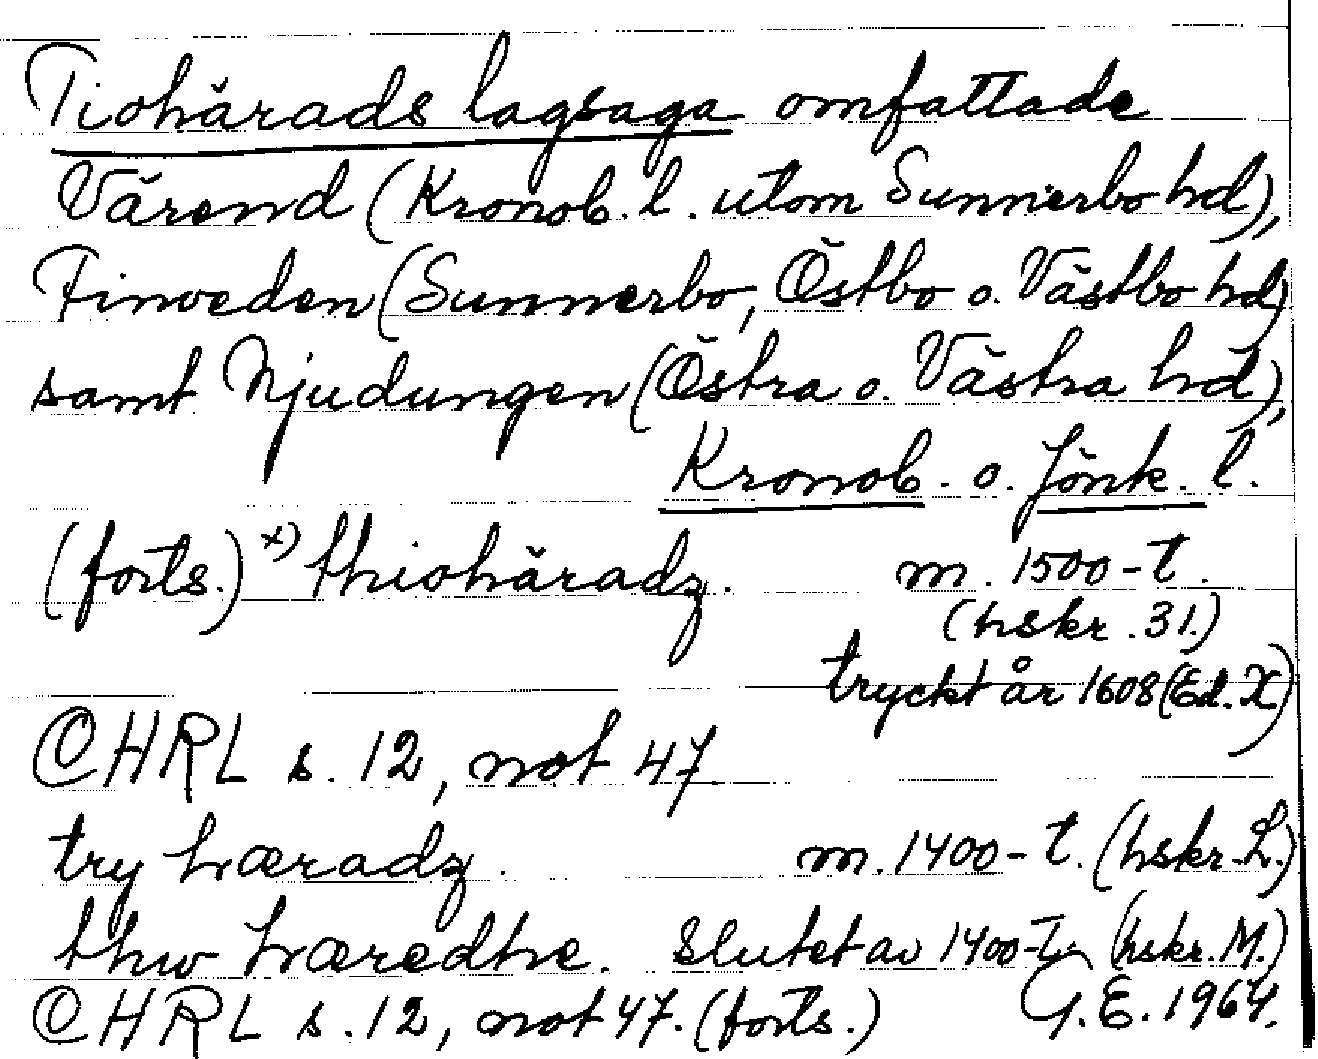 Tiohärads lagsaga omfattade
Värend (Kronob. l. utom Sunnerbo hd),
Finveden (Sunnerbo, Östbo o. Västbo hd)
samt Njudungen (Östra o. Västra hd),
Kronob. o. Jönk. l.
(forts.) x) thiohäradz. m. 1500-t.
(hskr. 31.)
tryckt år 1608 (Ed. X)
CHRL s. 12, not 47
try hæradz. m. 1400-t. (hskr. L.)
thw hæredhe. Slutet av 1400-t. (hskr. M.)
CHRL s. 12, not 47. (forts.) G.E. 1964.